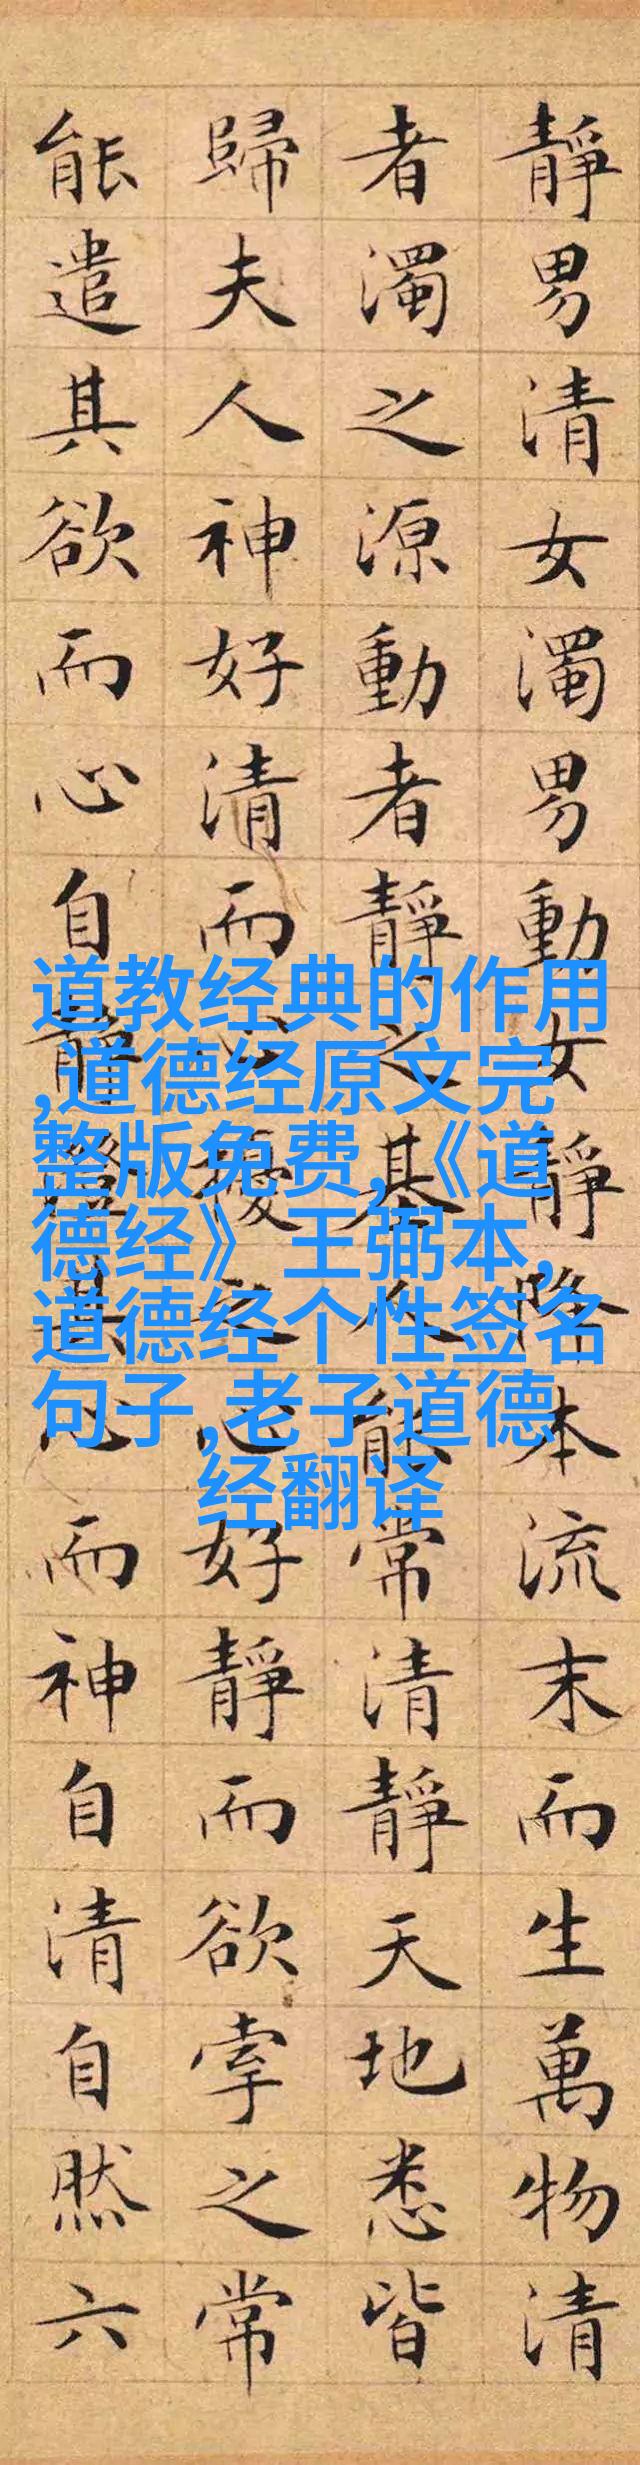 靜男清女濁男動女靜降本流末而生萬物清
者濁之源動者靜之基人能常清靜天地悉皆
歸夫人神好清而心擾之心好靜而欲牽之常
能遣其欲而心自靜澄其心而神自清自然六
道教经典的作用
,道德经原文完
整版免费,《道
德经》王弼本,
道德经个性签名
句子,老子道德
经翻译